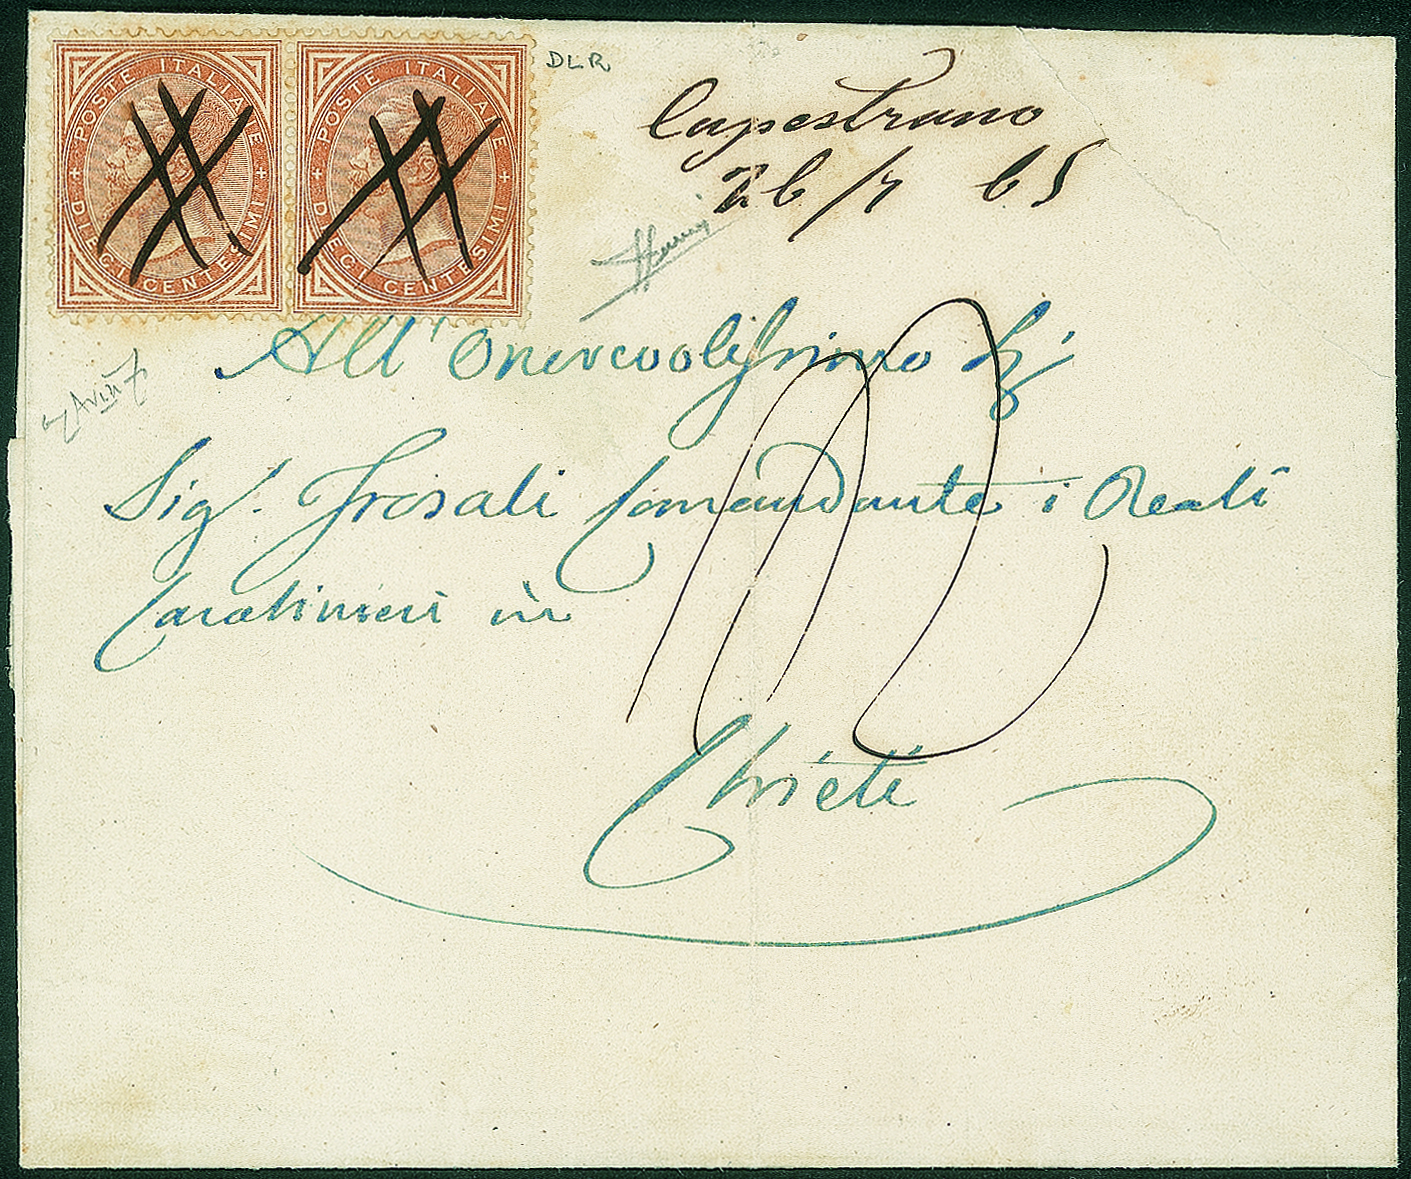 POSTE ITALIANE DIECI CENTESIMI
POSTE ITALIANE DIECI CENTESIMI
DLR
Capestrano
26/7 65
All' Onorevolissimo
Sig. Frosali Comandante i Reali
Carabinieri in
Chieti